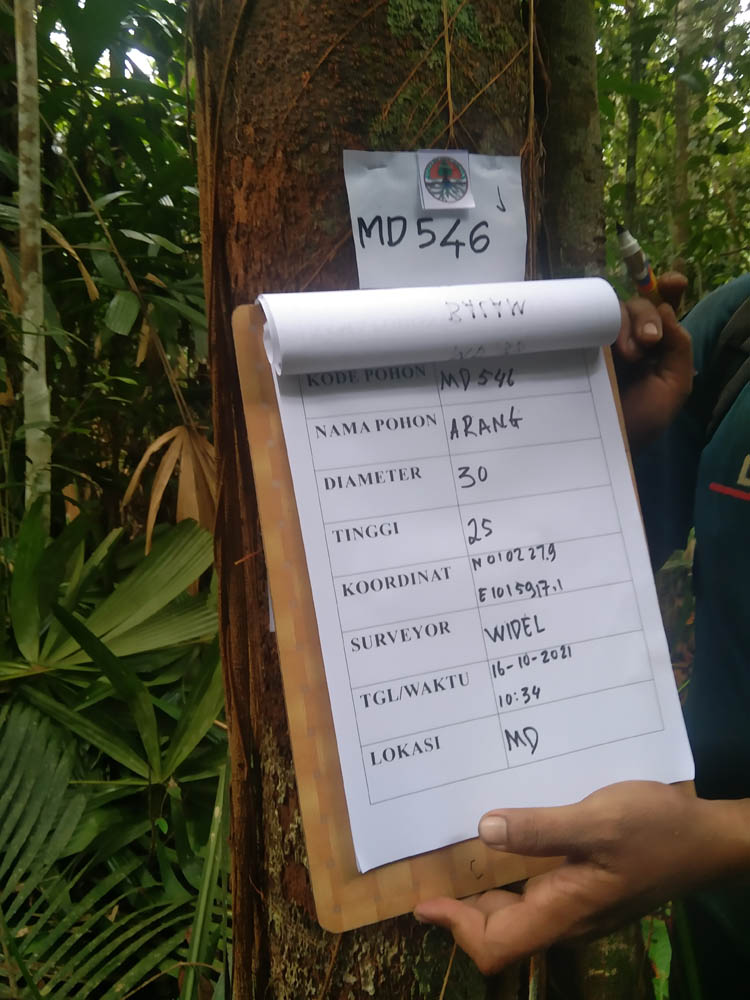 MD546
KODE POHON MD546
NAMA POHON ARANG
DIAMETER 30
TINGGI 25
KOORDINAT N 010227.9
E1015917.1
SURVEYOR WIDEL
TGL/WAKTU 16-10-2021
10:34
LOKASI MD